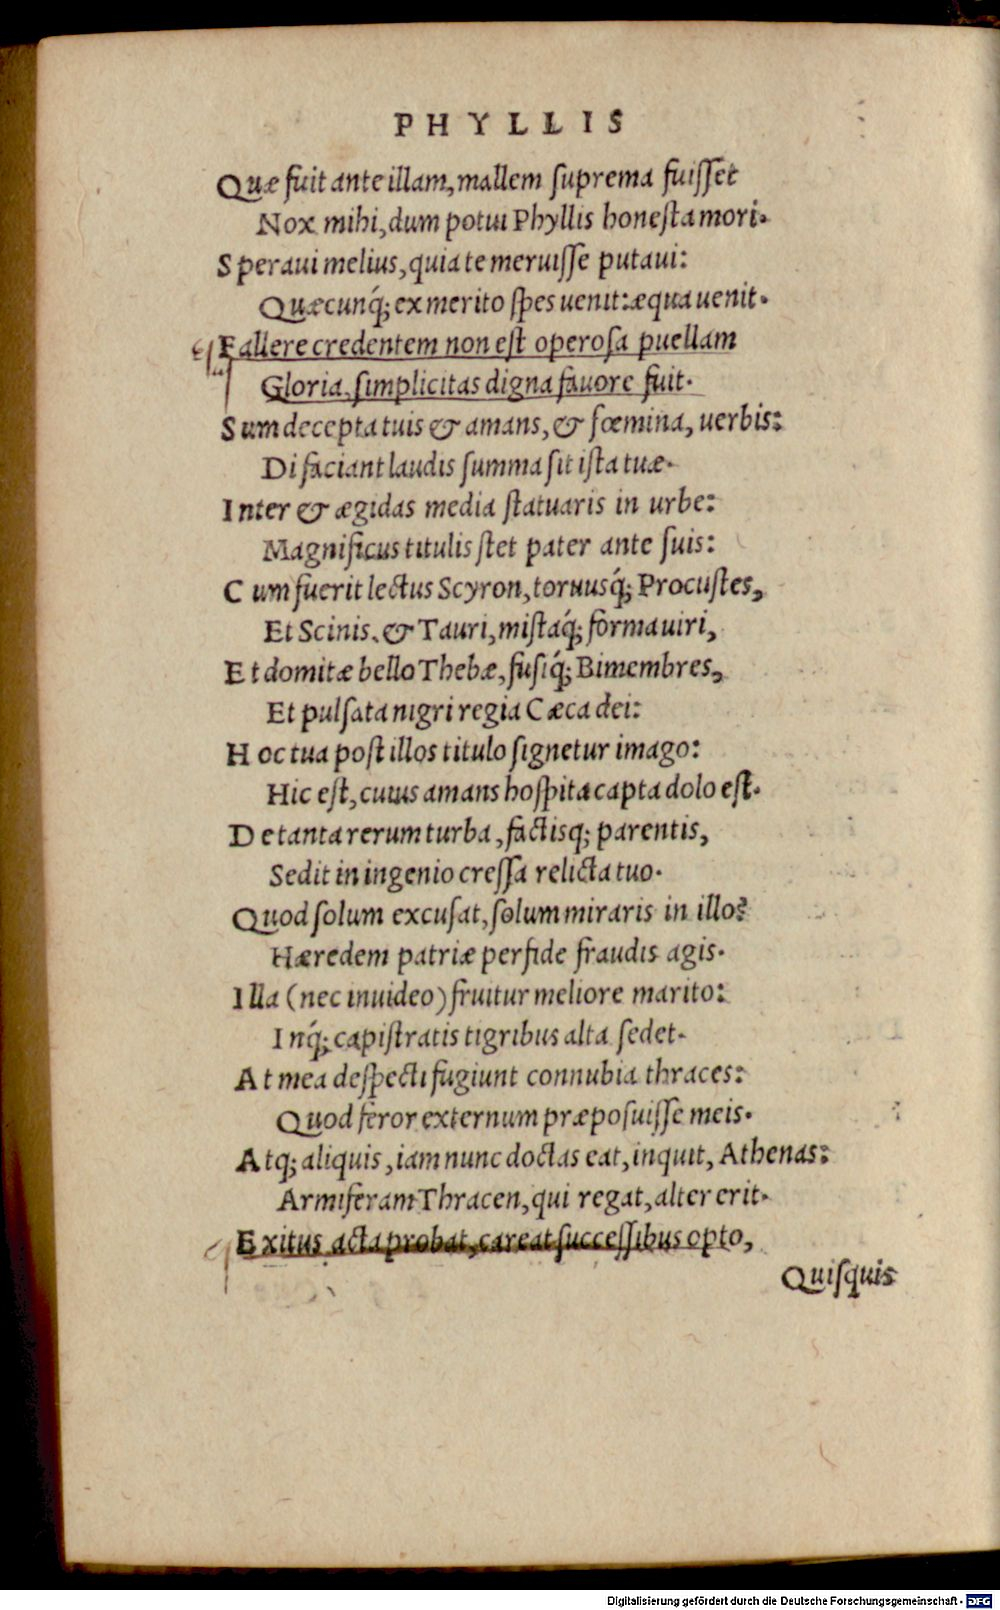 PHYLLIS
Quæ fuit ante illam, mallem ſuprema fuiſſet
Nox mihi, dum potui Phyllis honeſta mori.
Speraui melius, quia te meruiſſe putaui:
Quæcunq́; ex merito ſpes uenit: æqua uenit.
Fallere credentem non eſt operoſa puellam
Gloria, ſimplicitas digna fauore fuit.
Sum decepta tuis & amans, & fœmina, uerbis:
Di faciant laudis ſumma ſit iſta tuæ.
Inter & ægidas media ſtatuaris in urbe:
Magnificus titulis ſtet pater ante ſuis:
Cum fuerit lectus Scyron, toruusq́; Procuſtes,
Et Scinis, & Tauri, miſtaq́; forma uiri,
Et domitæ bello Thebæ, fuſiq́; Bimembres,
Et pulſata nigri regia Cæca dei:
Hoc tua poſt illos titulo ſignetur imago:
Hic eſt, cuius amans hoſpita capta dolo eſt.
De tanta rerum turba, factisq; parentis,
Sedit in ingenio creſſa relicta tuo.
Quod ſolum excuſat, ſolum miraris in illo?
Hæredem patriæ perfide fraudis agis.
Illa (nec inuideo) fruitur meliore marito:
Inq́; capiſtratis tigribus alta ſedet.
At mea deſpecti fugiunt connubia thraces:
Quod feror externum præpoſuiſſe meis.
Atq; aliquis, iam nunc doctas eat, inquit, Athenas:
Armiferam Thracen, qui regat, alter erit.
Exitus acta probat, careat ſucceſſibus opto,
Quiſquis
Digitalisierung gefördert durch die Deutsche Forschungsgemeinschaft - DFG